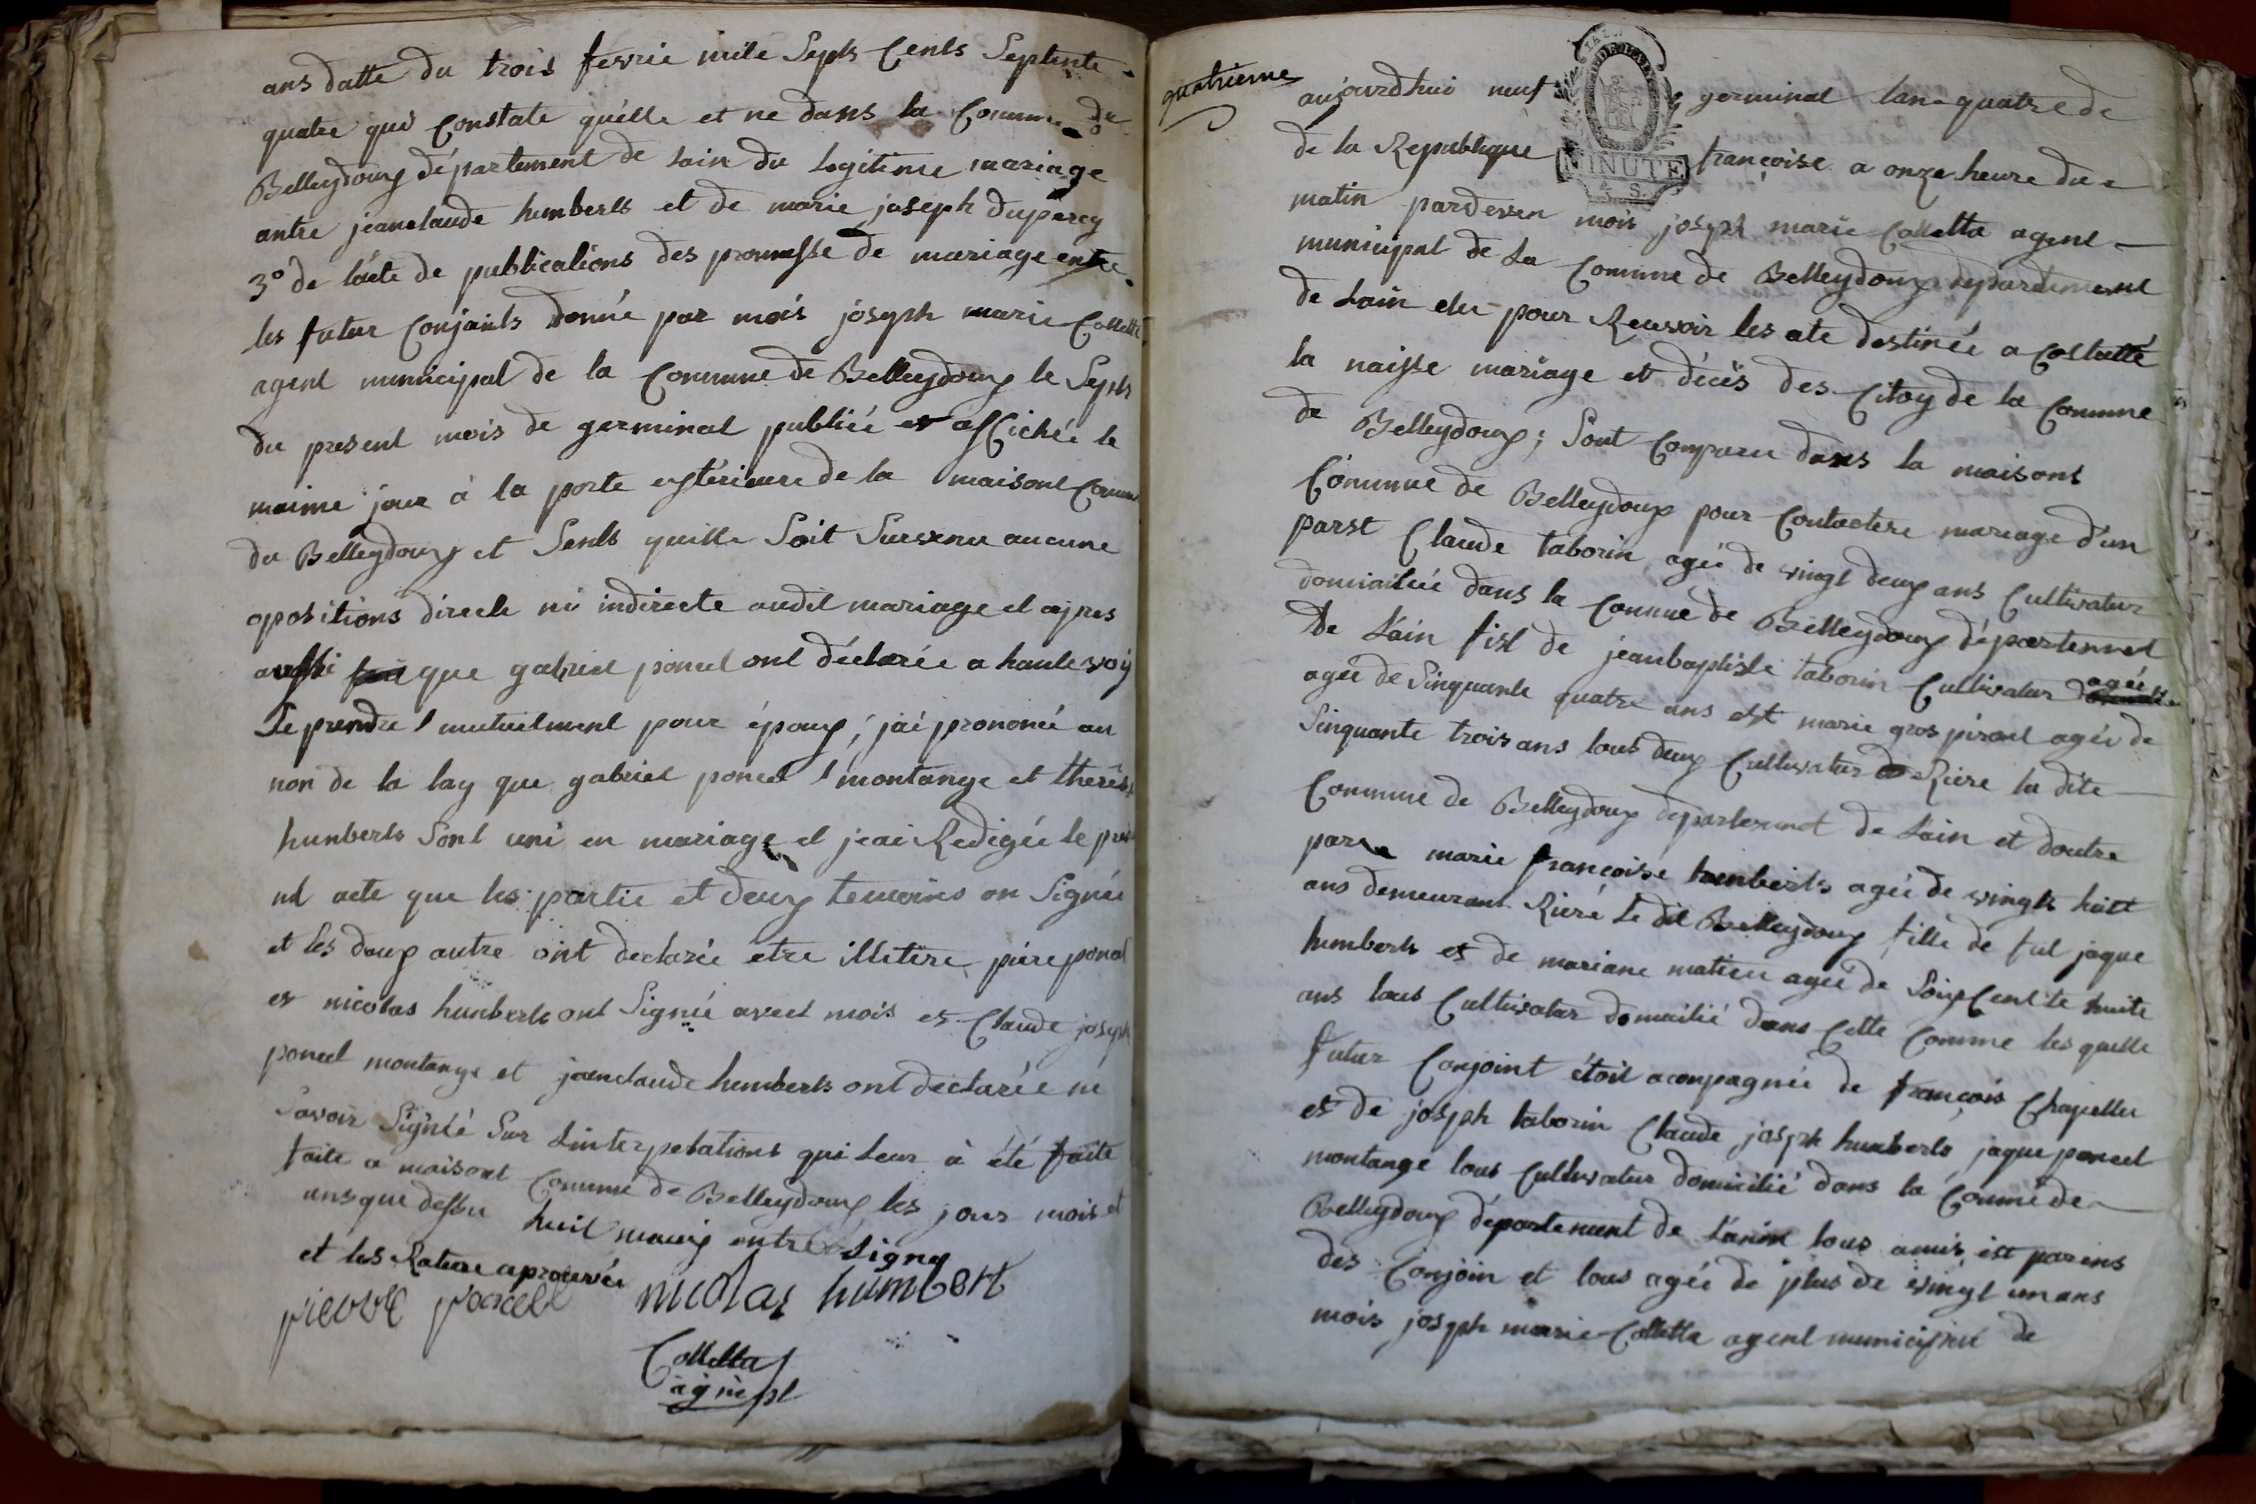 ans datte du trois fevrie mile Septs Cents Septente
quatre qui Constate quélle et ne dans la Comune de
Belleydoux département de lain du legitime mariage
antre jeanclaude humberts et de marie joseph duparcy
3° de láete de publications des promesse de mariage entre
les futur Conjoints donné par mois joseph marie Colletta
agent municipal de la Comune de Belleydoux le Septs
du present mois de germinal publiée et affichée le
maime jour à la porte extérieure de la maisont Comune
du Belleydoux et Sents quille Soit Survenu aucune
opositions directe ni indirecte audit mariage et apres
aussi que gabriel poncet ont déclarée a haute voix
Se prendre mutuelment pour époux; jai prononcé au
non de la lay que gabriel poncet montange et therese
humberts Sont uni en mariage et jeai Redigée le pres
nt acte que les partie et deux temoins on Signée
et les deux autre ont declarée etre illitire, piere poncet
et nicolas humberts ont Signié avect mois et Claude joseph
poncet montange et jeanclaude humberts ont declarée ne
Savoir Signéé Sur Linterpelations qui leur à été faite
faite a maisont Comune de Belleydoux les jour mois et
ans que dessu huit mauis entre Ligne
et les Rature aprouvée
pierre poncet nicolas humbert
Colletta
agnt
quatrieme
aujourdhui neuf germinal lan quatre de
de la Republique françoise a onze heure du
MINUTE
matin pardeven mois joseph marie Colletta agent
municipal de La Comune de Belleydoux departement
de Lain elu pour Reusvoir les ate destinée a Costatté
la naisse mariage et décès des Citoy de la Comune
de Belleydoux; Sont Comparu dans la maisons
Cómune de Belleydoux pour Contactere mariage d'un
parst Claude taborin agée de vingt deux ans Cultivatur
domiciliée dans la Comune de Belleydoux département
De Láin fisl de jeanbaptiste taborin Cultivatur agée
agée de Sinquante quatre ans est marie gros piront agée de
Sinquante trois ans tous deux Cultivatur Riere la dite
Commune de Belleydoux departement de Lain et doutre
pars marie françoise humberts agée de vingts huit
ans demeurant Rieré le dit Belleydoux fille de fut jaque
humberts et de mariane matieu agée de Soixcente huite
ans tous Cultivatur domicilié dans Cette Comme les quelle
futur Conjoint étoit acompagnée de françois Chapellu
et de joseph taborin Claude joseph humberts jaque poncet
montange tous Cultivatur domicilié dans la Comune de
Belleydoux département de Lánin tous amis est parens
des Conjoin et tous agée de plus de vingt un ans
mois joseph marie Colletta agent municipal de